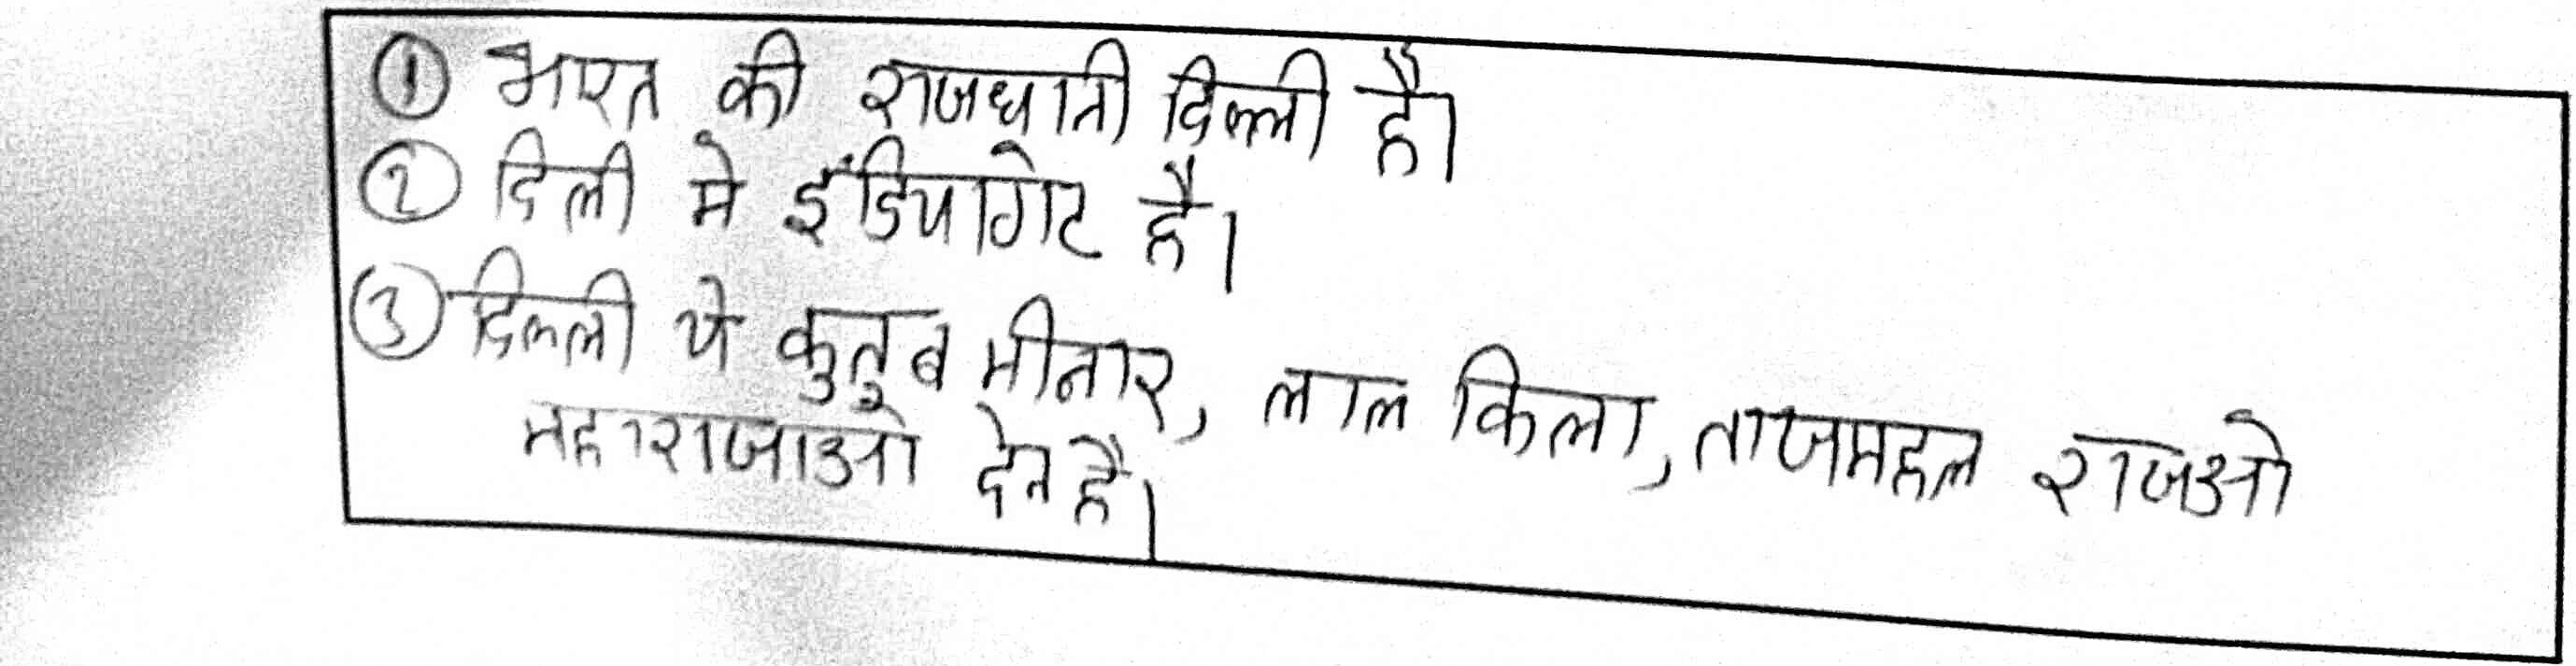 ① भारत की राजधानी दिल्ली है।
② दिली मे इंडियागेट है।
③ दिल्ली ये कुतुब मीनार, लाल किला, ताजमहल राजओ
महाराजाओ देन है।